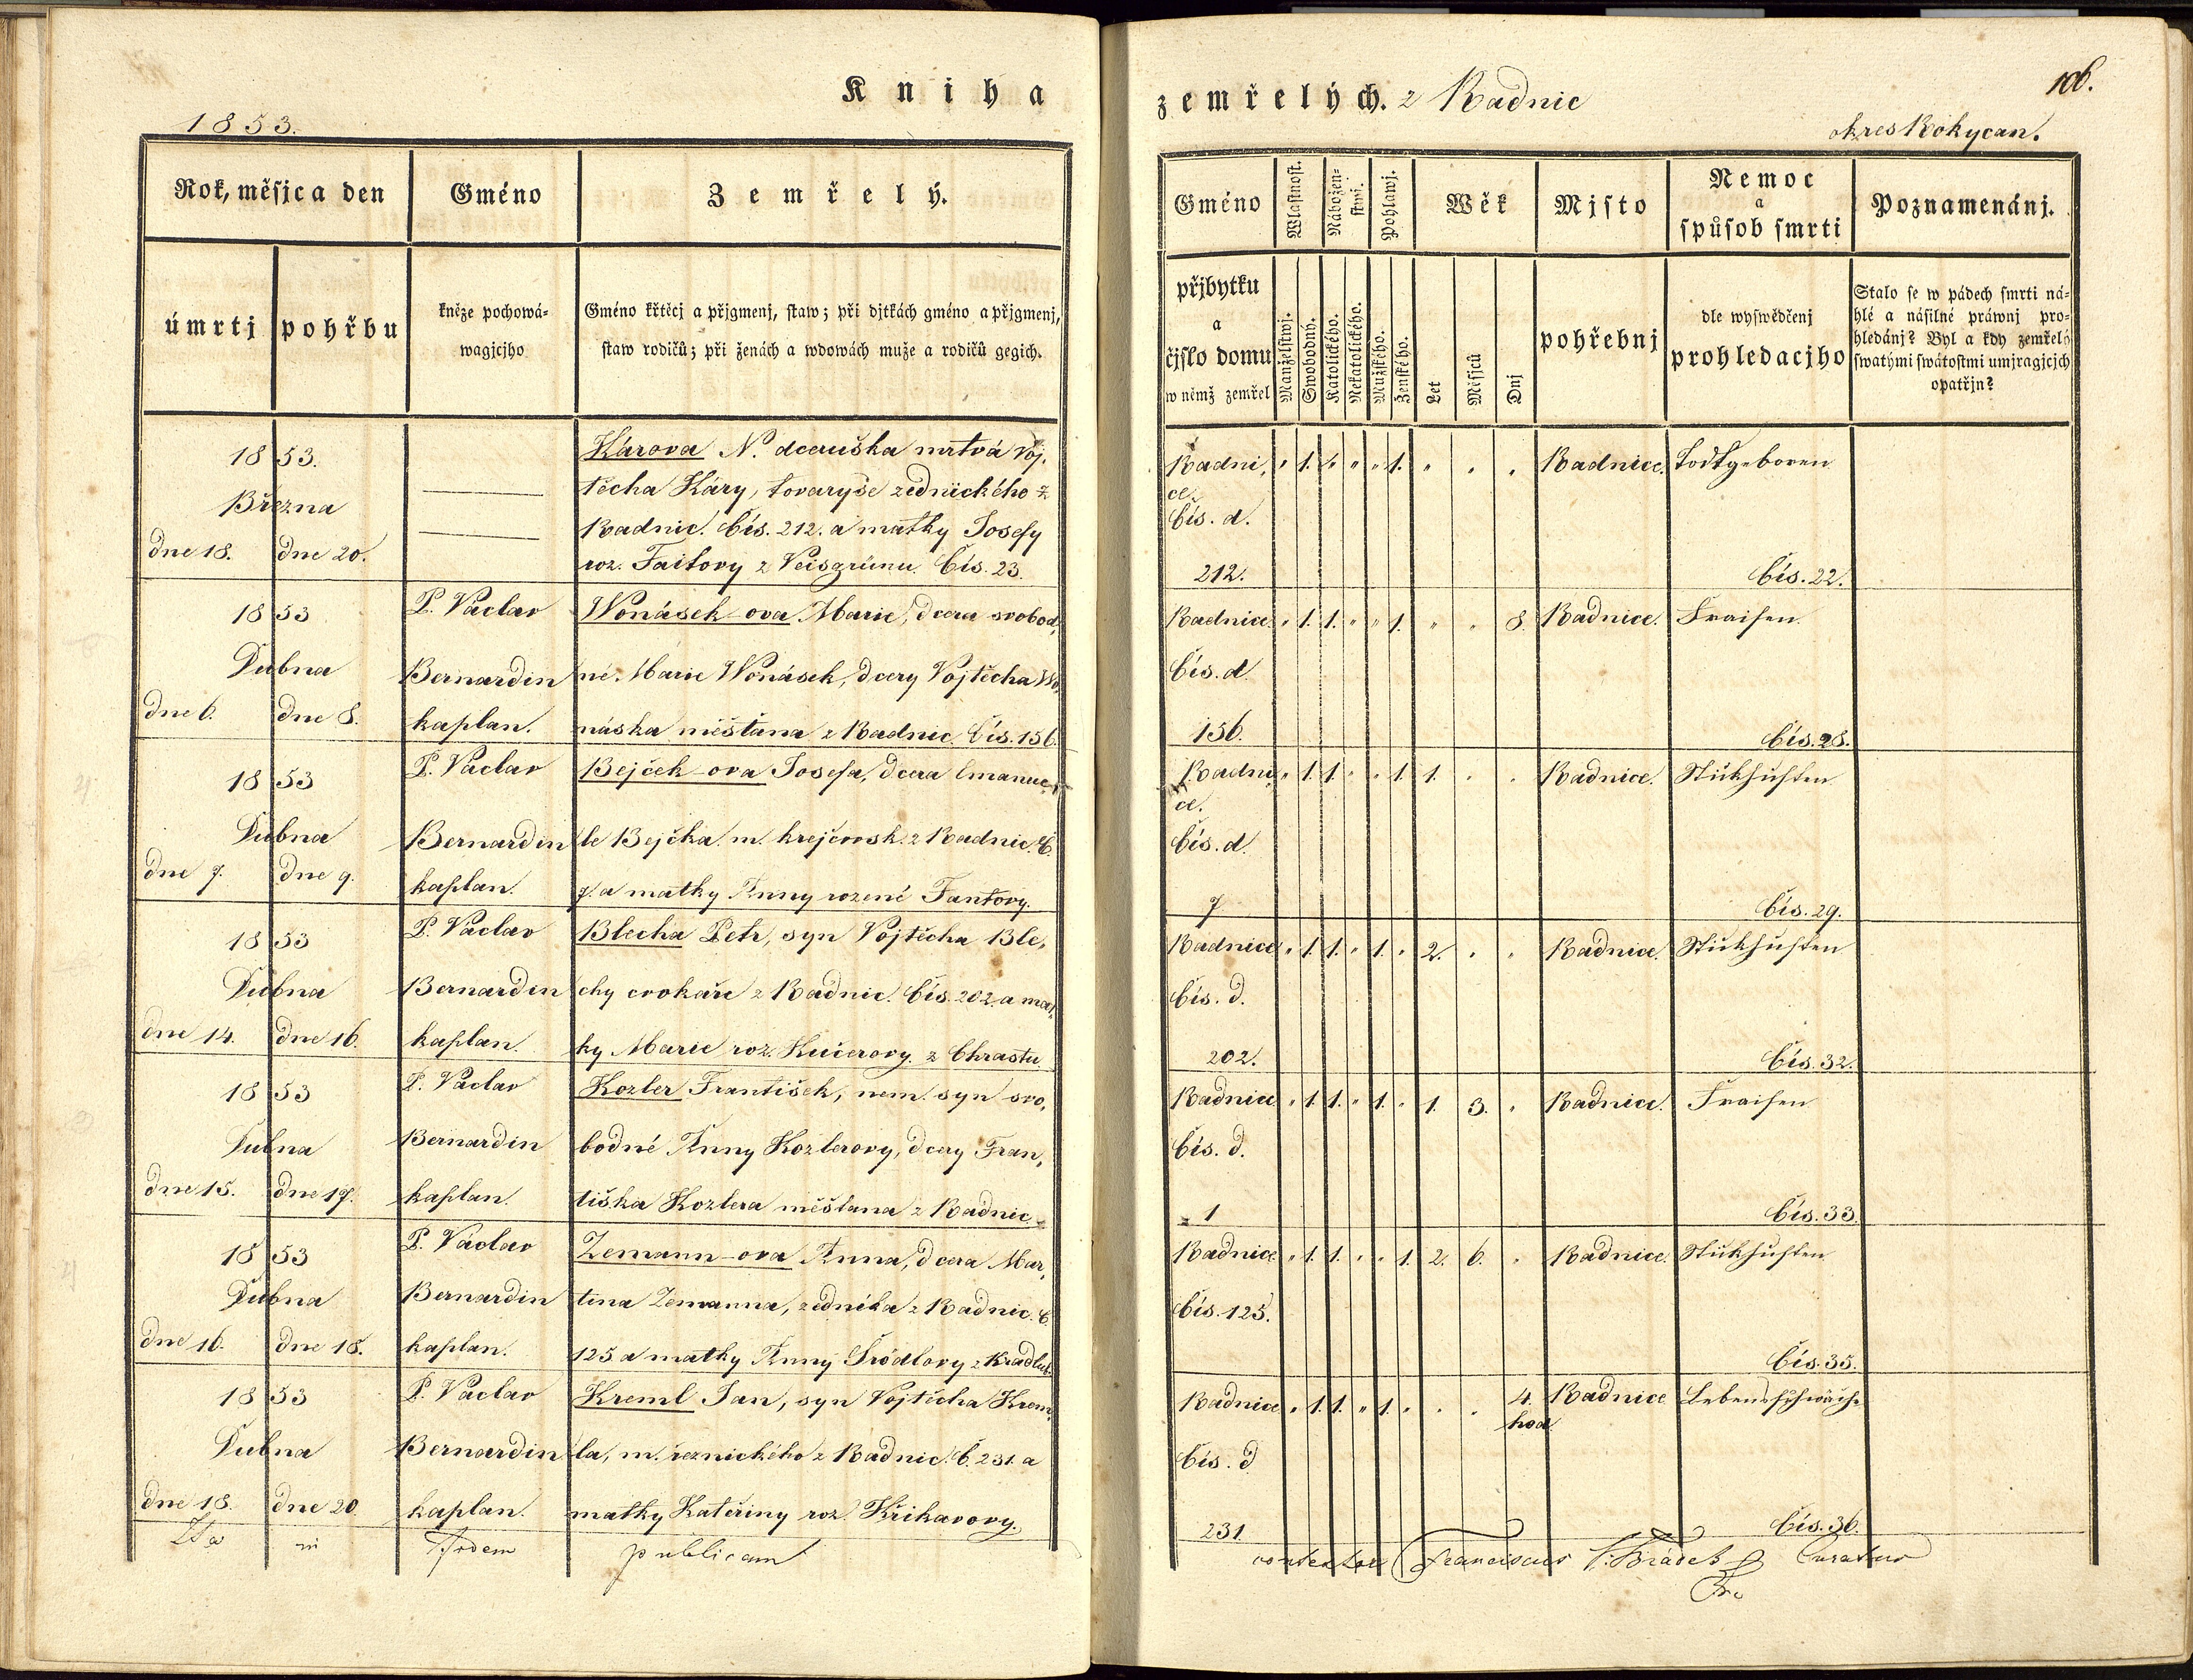 Kniha
1853.
Rok, měsjc a den
Gméno
Zemřelý.
úmrtj
pohřbu
kněze pochowá-
wagjcjho
Gméno křtěcj a přjgmenj, staw; při djtkách gméno a přjgmenj,
staw rodičů; při ženách a wdowách muže a rodičů gegich.
1853.
Března
dne 18. dne 20.
Károva N. dceruška mrtvá Voj,
těcha Káry, tovaryše zednického z
Radnic. Čís. 212. a matky Josefy
roz. Faitovy z Veisgrünu Čís. 23.
1853
Dubna
dne 6. dne 8.
P. Václav
Bernardin
kaplan.
Wonásek-ova Marie, dcera svobod,
né. Marie Wonásek, dcery Vojtěcha Wo,
náska měštana z Radnic. Čís. 156.
1853
Dubna
dne 7. dne 9.
P. Václav
Bernardin
kaplan.
Bejček-ova Josefa, dcera Emanue,
le Bejčka m. krejčovsk. z Radnic. Č.
7. a matky Anny rozené Fantovy.
1853
Dubna
dne 14. dne 16.
P. Václav
Bernardin
kaplan.
Blecha Petr, syn Vojtěcha Ble,
chy cvokaře z Radnic. Čís. 202. a mat,
ky Marie roz. Kučerovy. z Chrastu.
1853
Dubna
dne 15. dne 17.
P. Václav
Bernardin
kaplan.
Kozler František, nem. syn svo,
bodné Anny Kozlerovy, dcery Fran,
tiška Kozlera měštana z Radnic
1853
Dubna
dne 16. dne 18.
P. Václav
Bernardin
kaplan.
Zemann-ova Anna, dcera Mar,
tina Zemanna, zedníka z Radnic. Č.
125 a matky Anny Šrödlovy z Kradlub.
1853
Dubna
dne 18. dne 20.
P. Václav
Bernardin
kaplan.
Kreml Jan, syn Vojtěcha Krem,
la, m. řeznického z Radnic. Č. 231. a
matky Kateřiny roz. Křikavovy.
Ita in fidem publicam
zemřelých. z Radnic
106.
okres Rokycan.
Gméno
Wlastnost.
Nábožen-
stwj.
Pohlawj.
Wěk
Mjsto
Nemoc
a
spůsob smrti
Poznamenánj.
přjbytku
a
čjslo domu
w němž zemřel
Manželstwj.
Swobodný.
Katolického.
Nekatolického.
Mužského.
Ženského.
Let
Měsjců
Dnj
pohřebnj
dle wyswědčenj
prohledacjho
Stalo se w pádech smrti ná-
hlé a násilné práwnj pro-
hledánj? Byl a kdy zemřelý
swatými swátostmi umjragjcjch
opatřjn?
Radni, " 1. 1. " " 1. " " " Radnice. Todtgeboren
ce.
Čís. d.
212. Čís. 22.
Radnice. " 1. 1. " " 1. " " 8. Radnice. Fraisen
Čís. d.
156. Čís. 28.
Radni, " 1. 1. " " 1. 1. " " Radnice. Stickhusten
ce.
Čís. d.
7 Čís. 29.
Radnice " 1. 1. " 1. " 2. " " Radnice. Stickhusten
Čís. d.
202. Čís. 32.
Radnice " 1. 1. " 1. " 1. 3. " Radnice. Fraisen
Čís. d.
1 Čís. 33.
Radnice " 1. 1. " " 1. 2. 6. " Radnice. Stickhusten
Čís. 125.
Čís. 35.
Radnice " 1. 1. " 1. " " " 4. Radnice Lebensschwäche
hod.
Čís. d
231. Čís. 36.
Franciscus Curatus